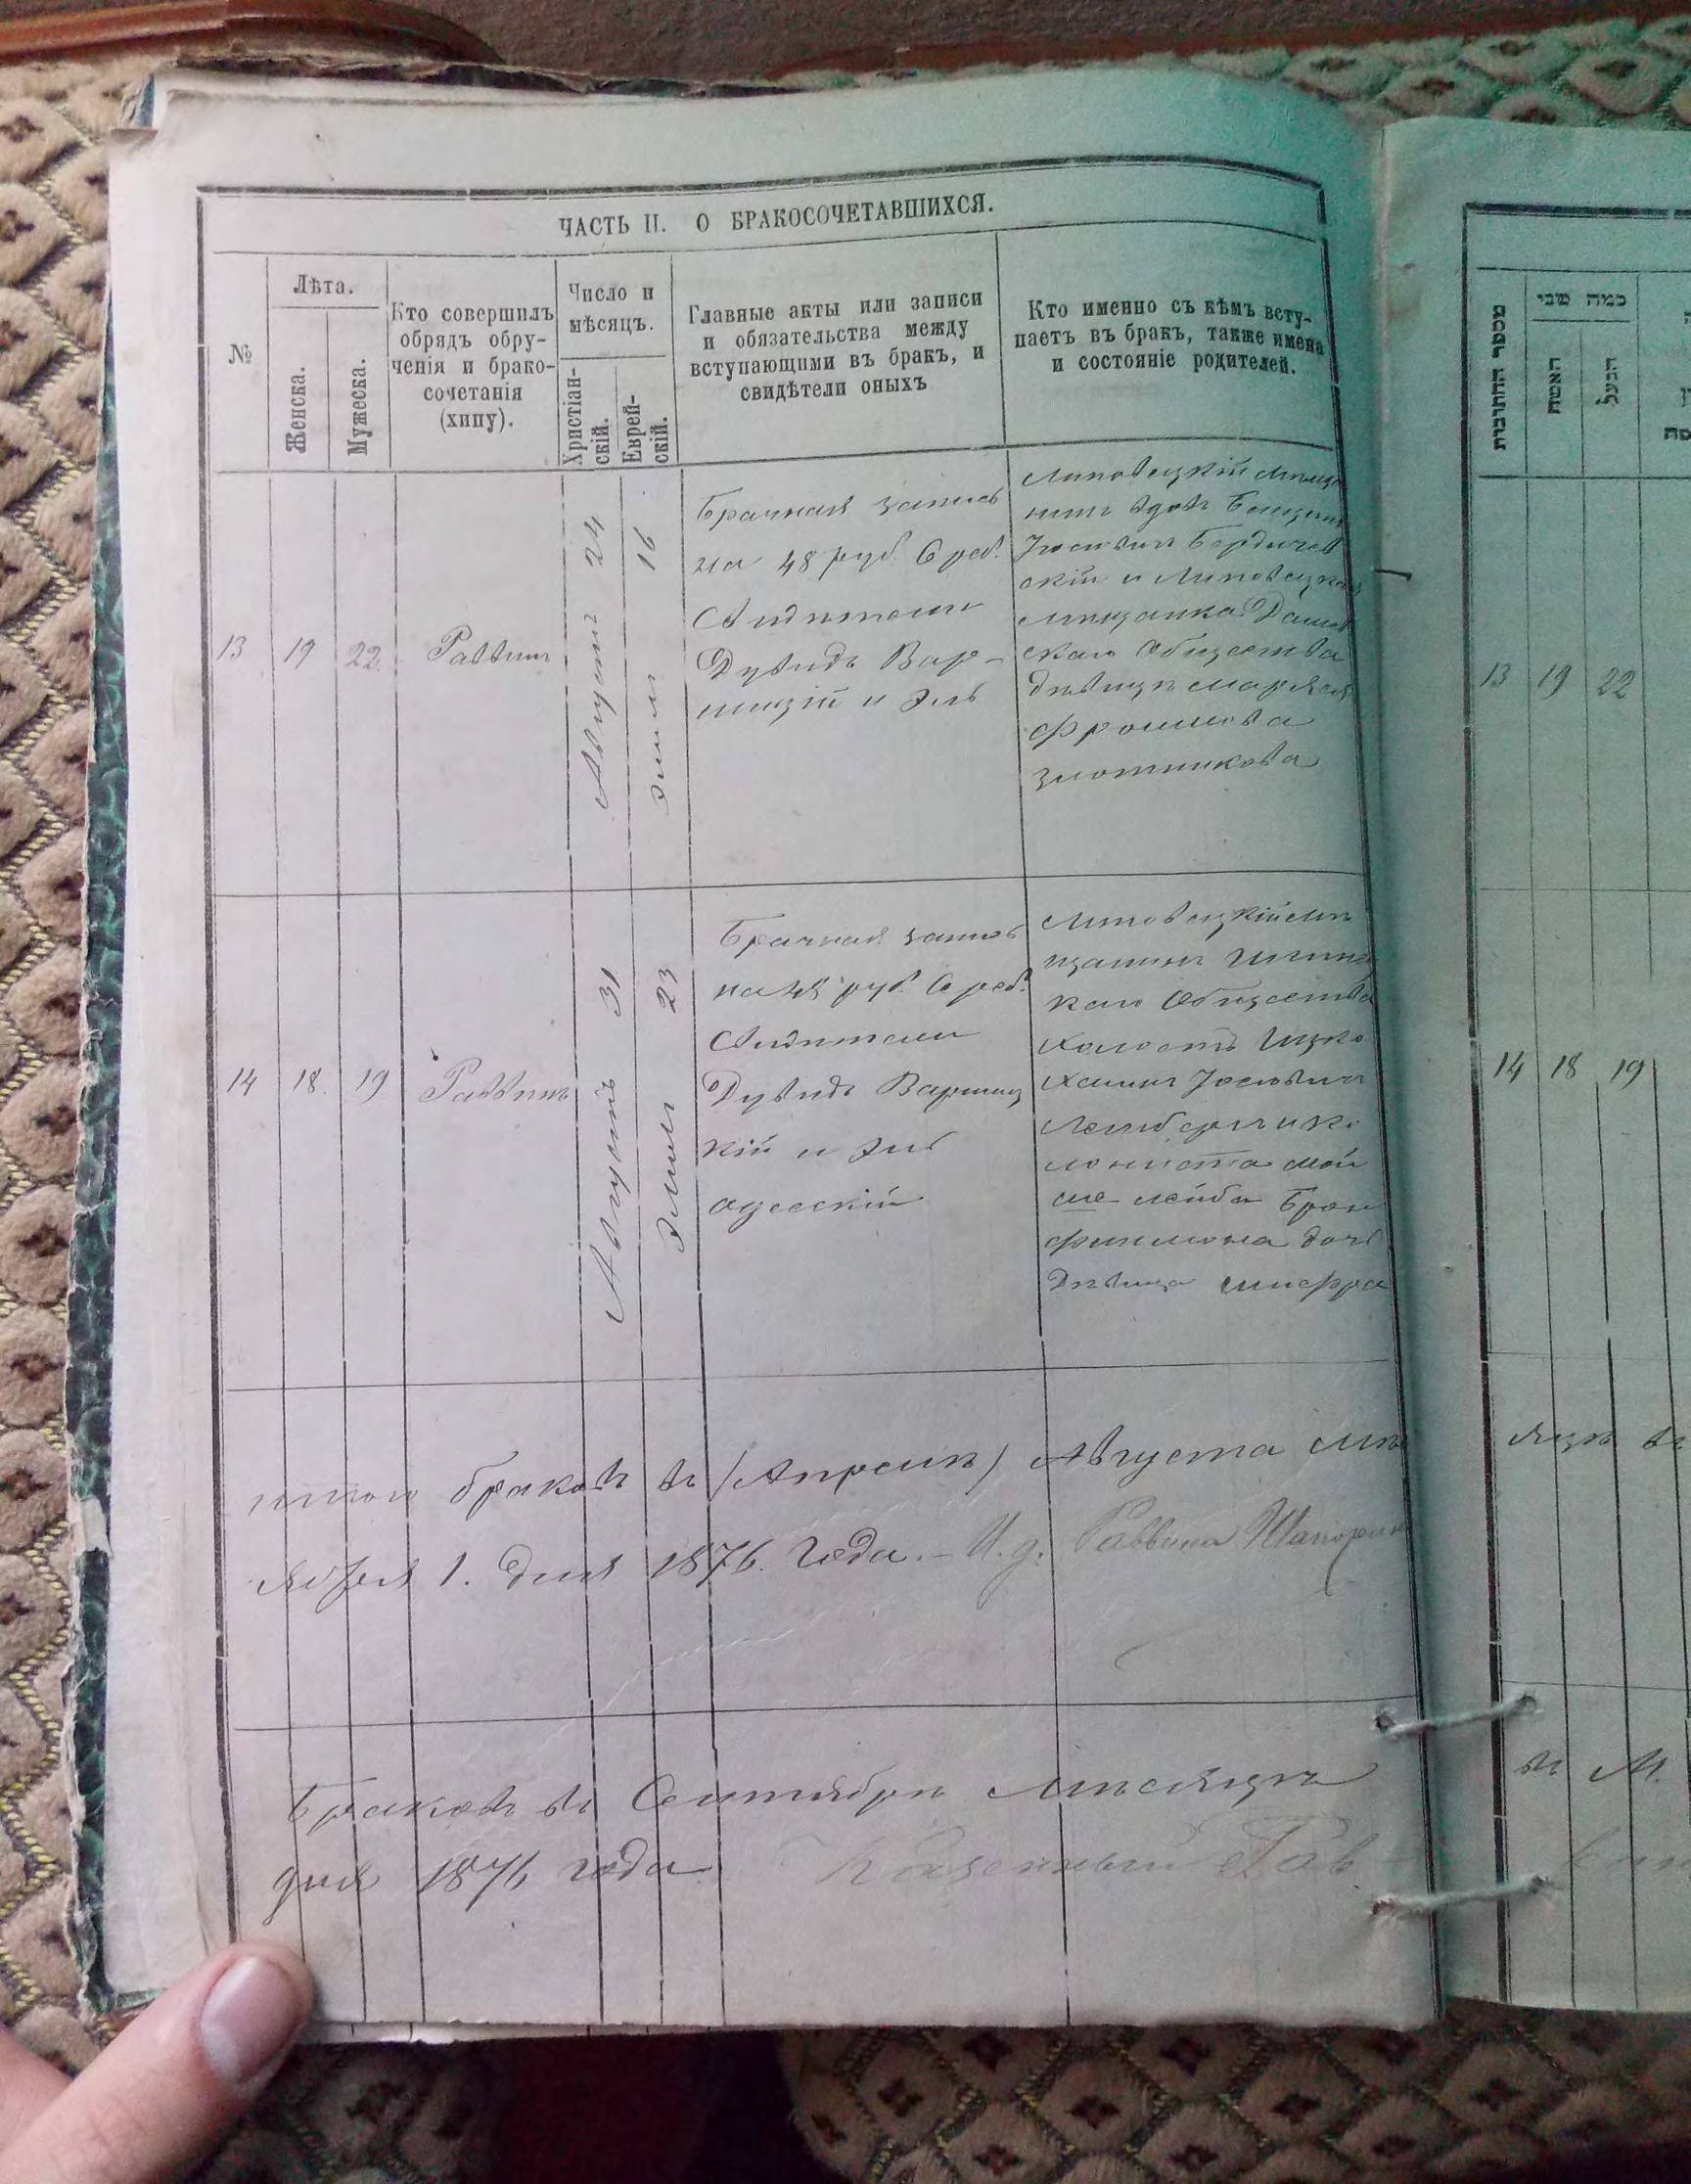 ЧАСТЬ II. О БРАКОСОЧЕТАВШИХСЯ.
№
Лѣта.
Женска.
Мужеска.
Кто совершилъ
обрядъ обру-
ченія и брако-
сочетанія
(хипу).
Число и
мѣсяцъ.
Христіан-
скій.
Еврей-
скій.
Главные акты или записи
и обязательства между
вступающими въ бракъ, и
свидѣтели оныхъ
Кто именно съ кѣмъ всту-
паетъ въ бракъ, также имена
и состояніе родителей.
13
19
22
Раввинъ
Августъ 24
Элюль 16
Брачная запись
на 48 руб. Сереб.
Свидѣтели
Дувидъ Вар-
шицкій и Эль
Липовецкій мѣща
нинъ вдовъ
Іосевичъ Бердичев
скій и Липовецкая
мѣщанка Дашев
скаго Общества
дѣвица
Фроимова
Злотникова
14
18.
19
Раввинъ
Августъ 31
Элюль 23
Брачная запись
на 48 руб. Сереб.
Свидѣтели
Дувидъ Варшиц
кій и Эль
одесскій
Липовецкій мѣ
щанинъ Илинец
каго Общества
холостъ Ицко
Хаимъ Іосіовичъ
и ко
лониста Мой
ше Лейба Брон
финмана дочь
Дѣвица Шифра
итого браковъ въ (Апрелѣ) Августа мѣ
1. дня 1876. года. – И. д. Раввина
Браковъ въ Сентябрѣ мѣсяцѣ
дня 1876 года Казенный Рав
מספר החתונות
כמה שני
האשה
הבעל
13
19
22
14
18
19
яцѣ въ
въ М.